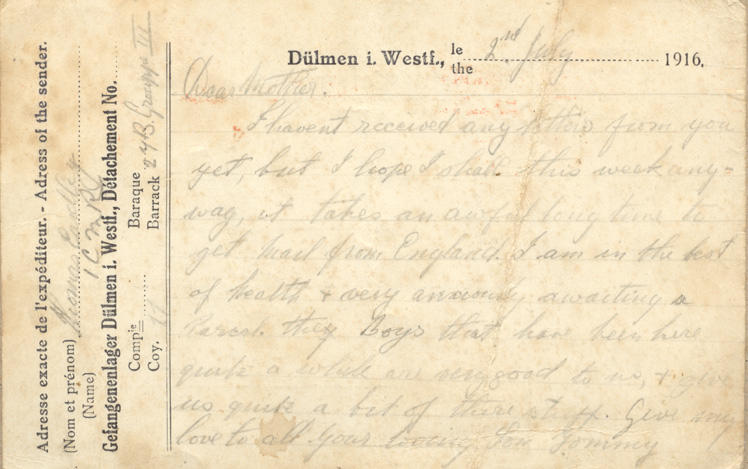 Adresse exacte de l'expéditeur. - Adress of the sender.
(Nom et prénom) Thomas
(Name) 1 C M R
Gefangenenlager Dülmen i. Westf., Détachement No.
Compie Baraque
Coy. 11 Barrack 27B Grouppe III
Dülmen i. Westf., le
the 2nd July 1916.
Dear Mother:
I havent received any letters from you
yet, but I hope I shall this week any-
way, it takes an awful long time to
get mail from England. I am in the best
of health & very anxiously awaiting a
Parcel. they Boys that have been here
quite a while are very good to us, & give
us quite a bit of there stuff. Give my
love to all Your loving Son Tommy